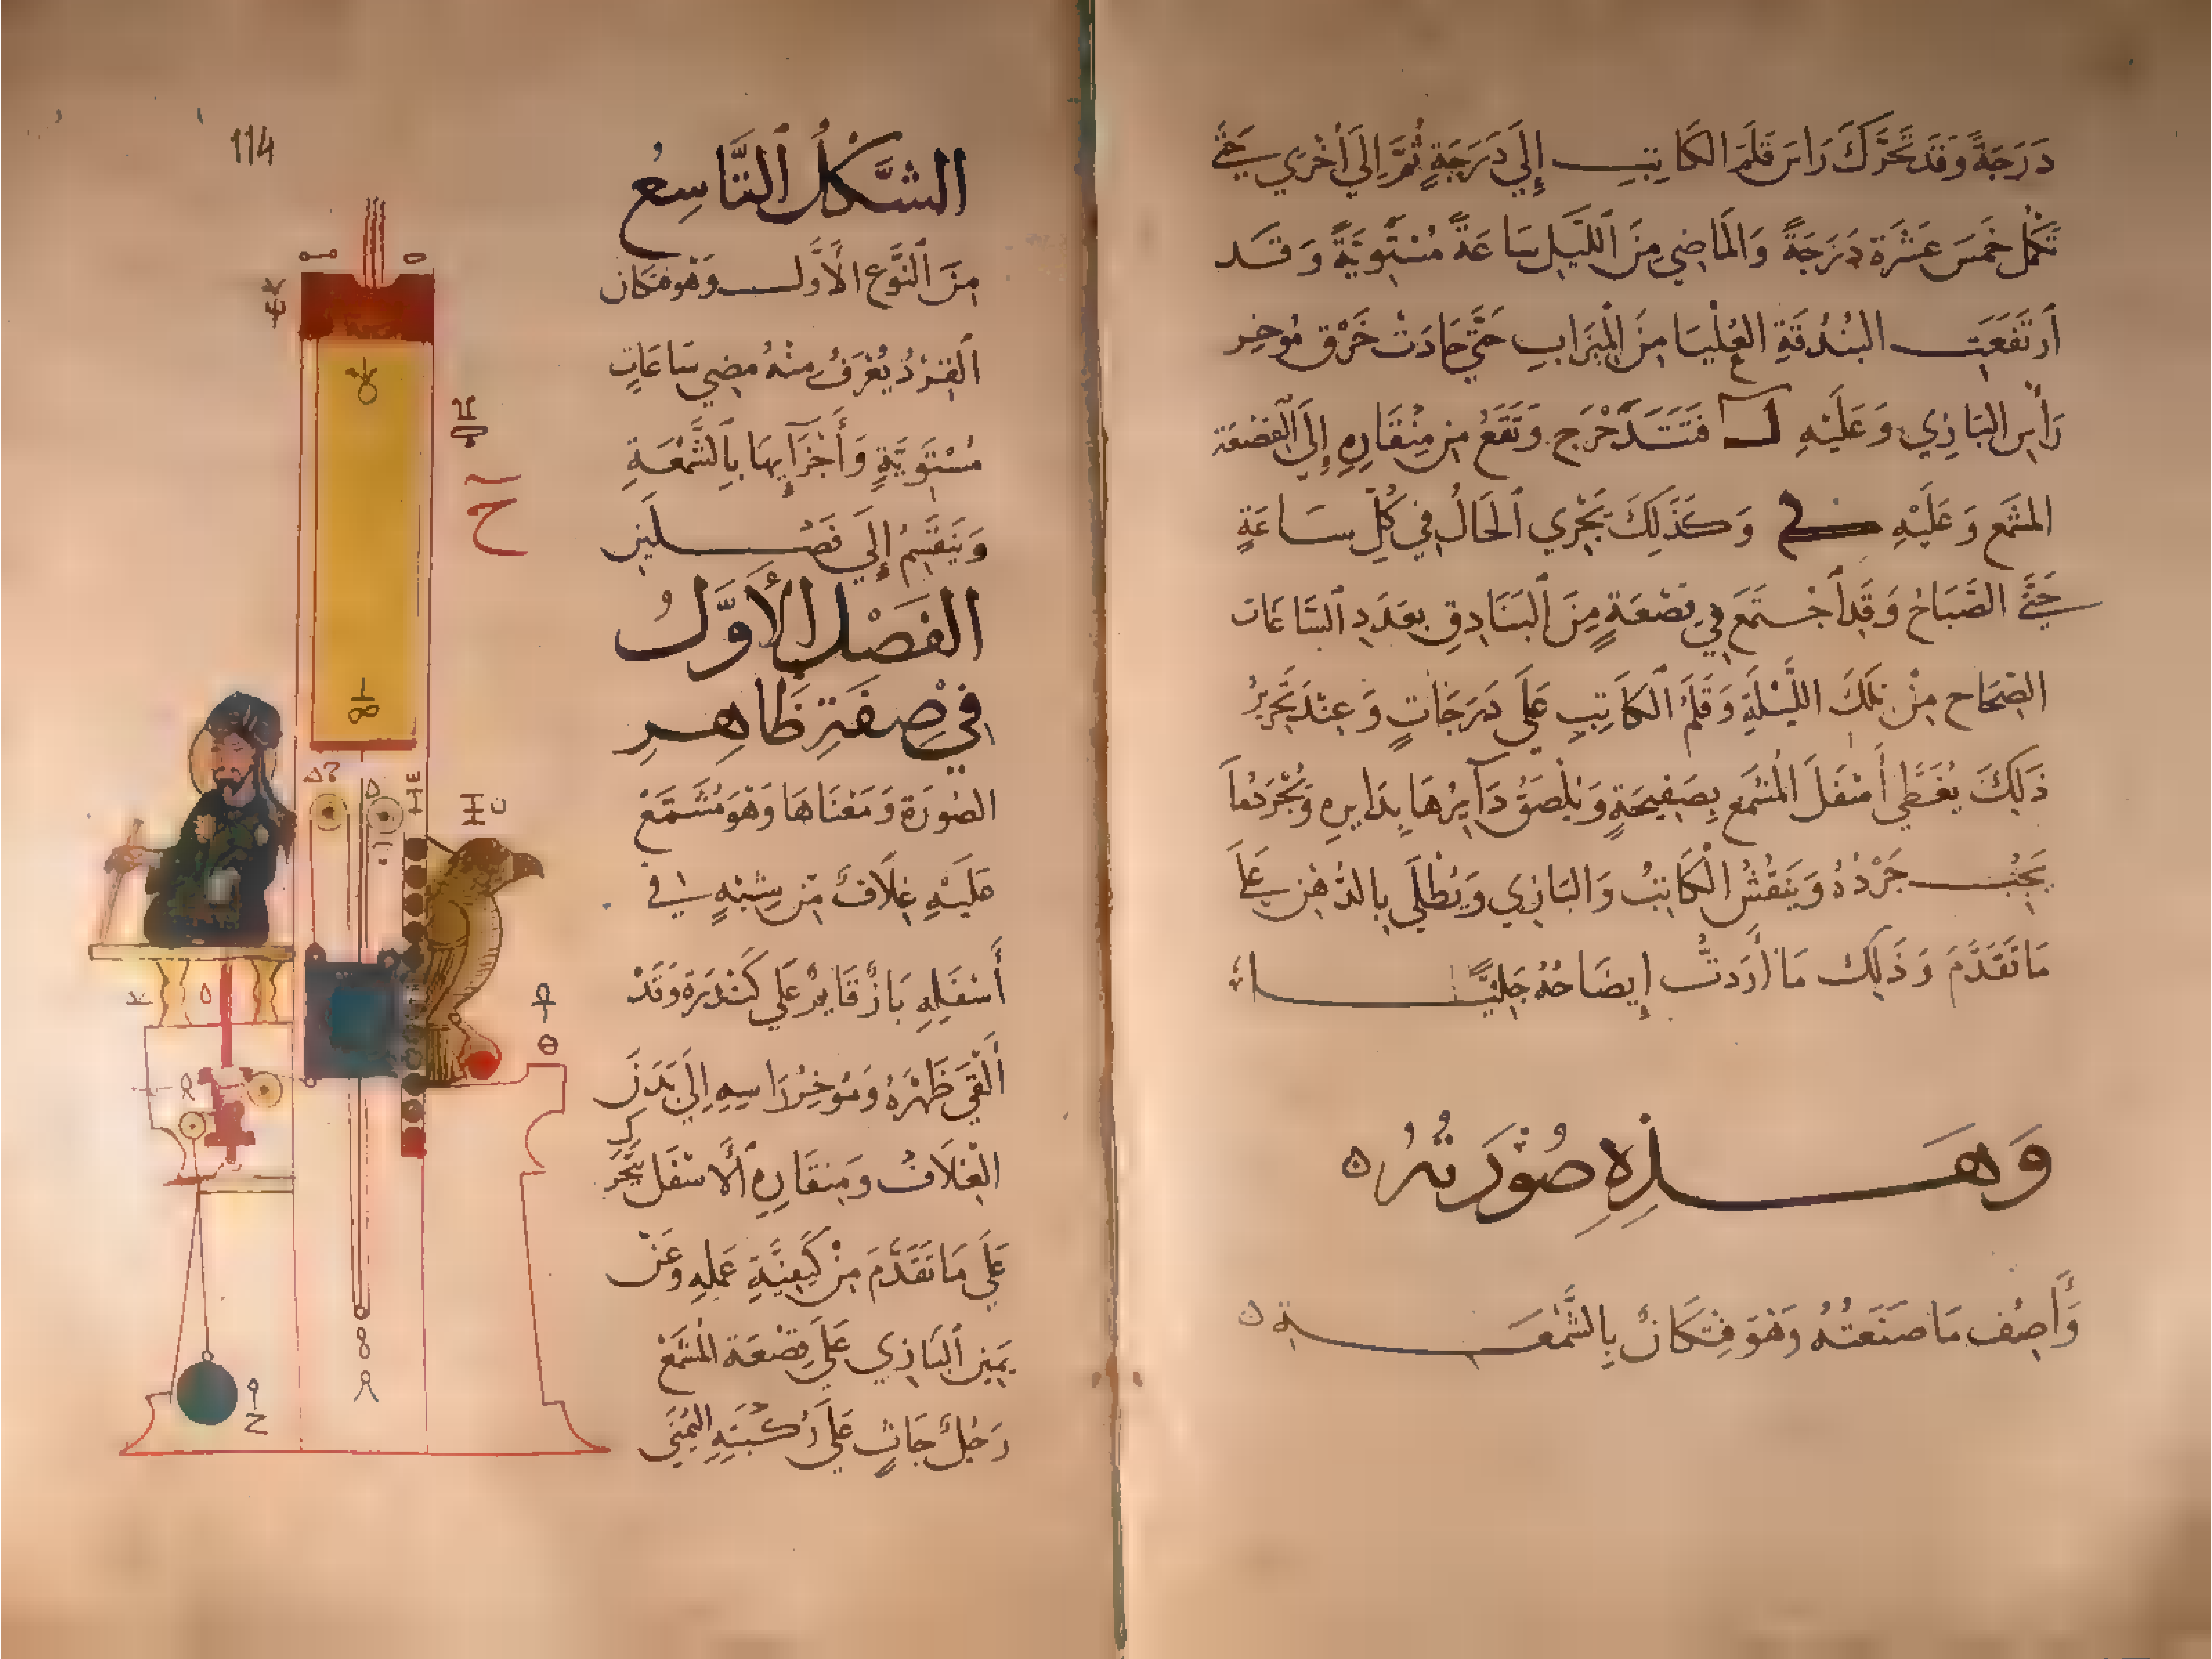 دَرَجَةً وَقَد تَحَرَّكَ رَاسَ قَلَمِ الكَاتِبِ إِلَي دَرَجَةٍ ثُمَّ اِلَي أُخْرَي حَتَّي
تَكْمُل خَمسَ عَشْرَة دَرَجَةً وَالمَاضِي مِنَ اللَّيلِ سَاعَةً مُسْتَوِيَةً وَقَد
اَرتَفَعَتِ البُندُقَةِ العُلْيَا مِنَ المِيزَابِ حَتَّي حَادَتْ خَرْق مُوخِر
رَأسِ البَازِي وَعَلَيْهِ لـ فَتَتَدَحْرَج وَتَقَعُ مِن مِنْقَارِهِ إِلَي القَصْعَة
المشمَع وَعَلَيْهِ وَكَذَلِكَ يَجْرِي اَلحَالُ فِي كُلِّ سَاعَةٍ
حَتَّي الصَّبَاحُ وَقَدِ اَجْتَمَعَ فِي قصْعَةٍ مِنَ البَنَادِقِ بِعَدَدِ السَّاعَات
الصِّحَاح مِنْ تلكَ اللَّيْلَةِ وَقَلَمُ الكَاتِبِ عَلَي دَرَجَاتٍ وَعِندَ تَحْرِيرُ
ذَلِكَ يُغَطَّي أَسْفَلَ المُشمَع بِصَفِيحَةٍ وَيُلصَقُ دَآيِرُهَا بِدَايِرِهِ وَيُجْرَدُ مَا
يَجِبُ جَرْدُهُ وَيَنقُشُ الكَاتِبُ وَالبَازِي وَيُطْلَي بِالدُّهنِ عَلَي
مَا تَقَدَّمَ وَذَلِكَ مَا أَرَدتُ إِيضَاحُهُ جَلِيًّا
وَهَذِهِ صُوْرَتُهُ
وَأَصِف مَا صَنَعتُهُ وَهوَ فِنكَانٌ بِالشَّمْعَةِ
114
الشَّكْلُ التَّاسِعُ
مِنَ النَّوْعِ الأَوَّل وَهوَ فنكَان
القِرْدُ يُعْرَفُ مِنْهُ مُضِي سَاعَاتٍ
مُسْتَوِيَّةٍ وَأَجْزَآيِهَا بِالشَّمْعَةِ
وَيَنقَسِمُ إِلَي فَصْلَينِ
الفَصْلُ الأَوَّلُ
فِي صِفَةِ ظَاهِرِ
الصُورَة وَمَعْنَاهَا وَهْوَ مُشَمَّعْ
عَلَيْهِ غِلَافٌ مِن شِبْهٍ فِي
أَسْفَلِهِ بَاز قَايمٌ عَلَي كَنْدَرَة وَقَدْ
أَلْقَي ظَهْرَهُ وَمُوخِرُ رَاسِهِ اِلَي بَدَنَ
الغِلَافُ وَمِنقَارِهِ الأَسْفَل
عَلَي مَا تَقَدَّمَ مِنْ كَيفِيَّةِ عَمَلِهِ وَعَنْ
يَمِينِ البَازِي عَلَي قِصْعَة المُشَمَّعْ
رَجُلٌ جَاثٍ عَلَي رُكْبَتِهِ اليُمْنَي